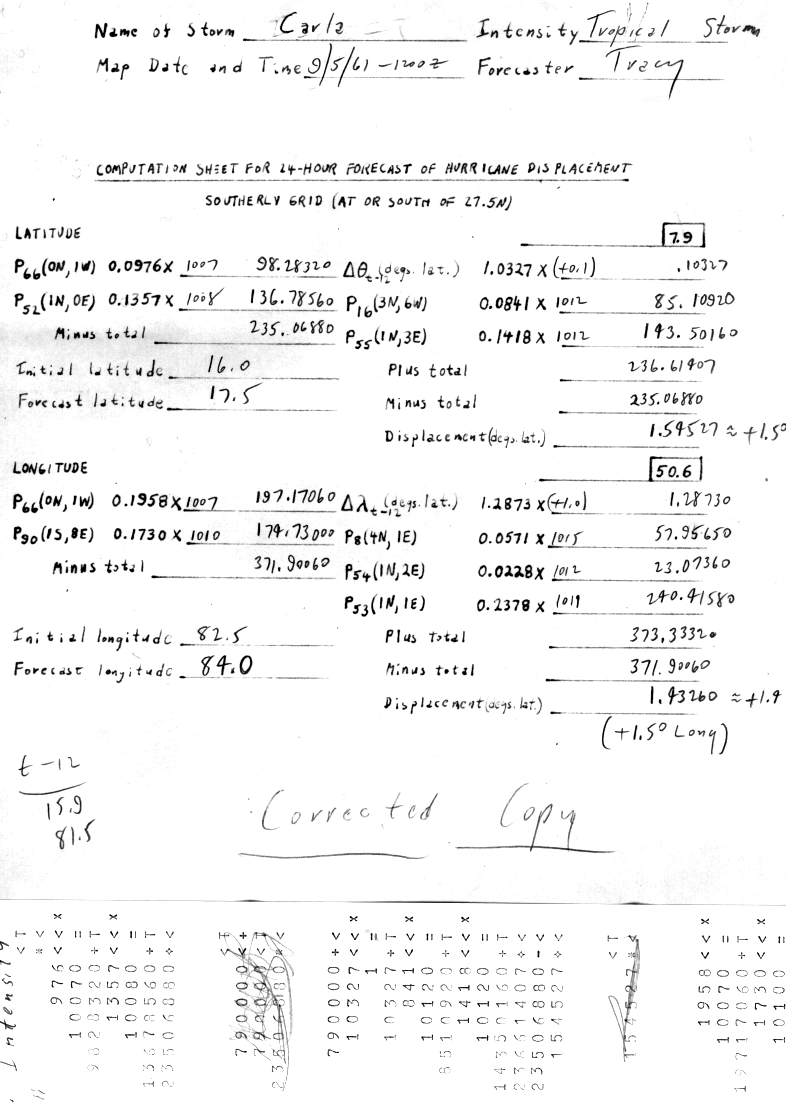 Name of Storm Carla Intensity Tropical Storm
Map Date and Time 9/5/61 -1200Z Forecaster Tracy
COMPUTATION SHEET FOR 24-HOUR FORECAST OF HURRICANE DISPLACEMENT
SOUTHERLY GRID (AT OR SOUTH OF 27.5N)
LATITUDE 7.9
P66(0N, 1W) 0.0976 X 1007 98.28320 Δθt-12 (degs. lat.) 1.0327 X (+0.1) .10327
P52(1N, 0E) 0.1357 X 1008 136.78560 P16(3N, 6W) 0.0841 X 1012 85.10920
Minus total 235.06880 P55(1N, 3E) 0.1418 X 1012 143.50160
Initial latitude 16.0 Plus total 236.61407
Forecast latitude 17.5 Minus total 235.06880
Displacement (degs. lat.) 1.54527 ≈ +1.5°
LONGITUDE 50.6
P66(0N, 1W) 0.1958 X 1007 197.17060 Δλt-12 (degs. lat.) 1.2873 X (+1.0) 1.28730
P90(1S, 8E) 0.1730 X 1010 174.73000 P8(4N, 1E) 0.0571 X 1015 57.95650
Minus total 371.90060 P54(1N, 2E) 0.0228 X 1012 23.07360
P53(1N, 1E) 0.2378 X 1011 240.41580
Initial longitude 82.5 Plus total 373.33320
Forecast longitude 84.0 Minus total 371.90060
Displacement (degs. lat.) 1.43260 ≈ +1.4
(+1.5° Long)
t-12
15.9
81.5
Corrected Copy
Intensity
< T
* <
976 < < X
10070 =
9828320 + T
1357 < < X
10080 =
13678560 + T
23506880 + <
790000 + <
10327 < < X
1 =
10327 + T
841 < < X
10120 =
8510920 + T
1418 < < X
10120 =
14350160 + T
23661407 + <
23506880 - <
154527 + <
< T
154527 * <
1958 < < X
10070 =
19717060 + T
1730 < < X
10100 =